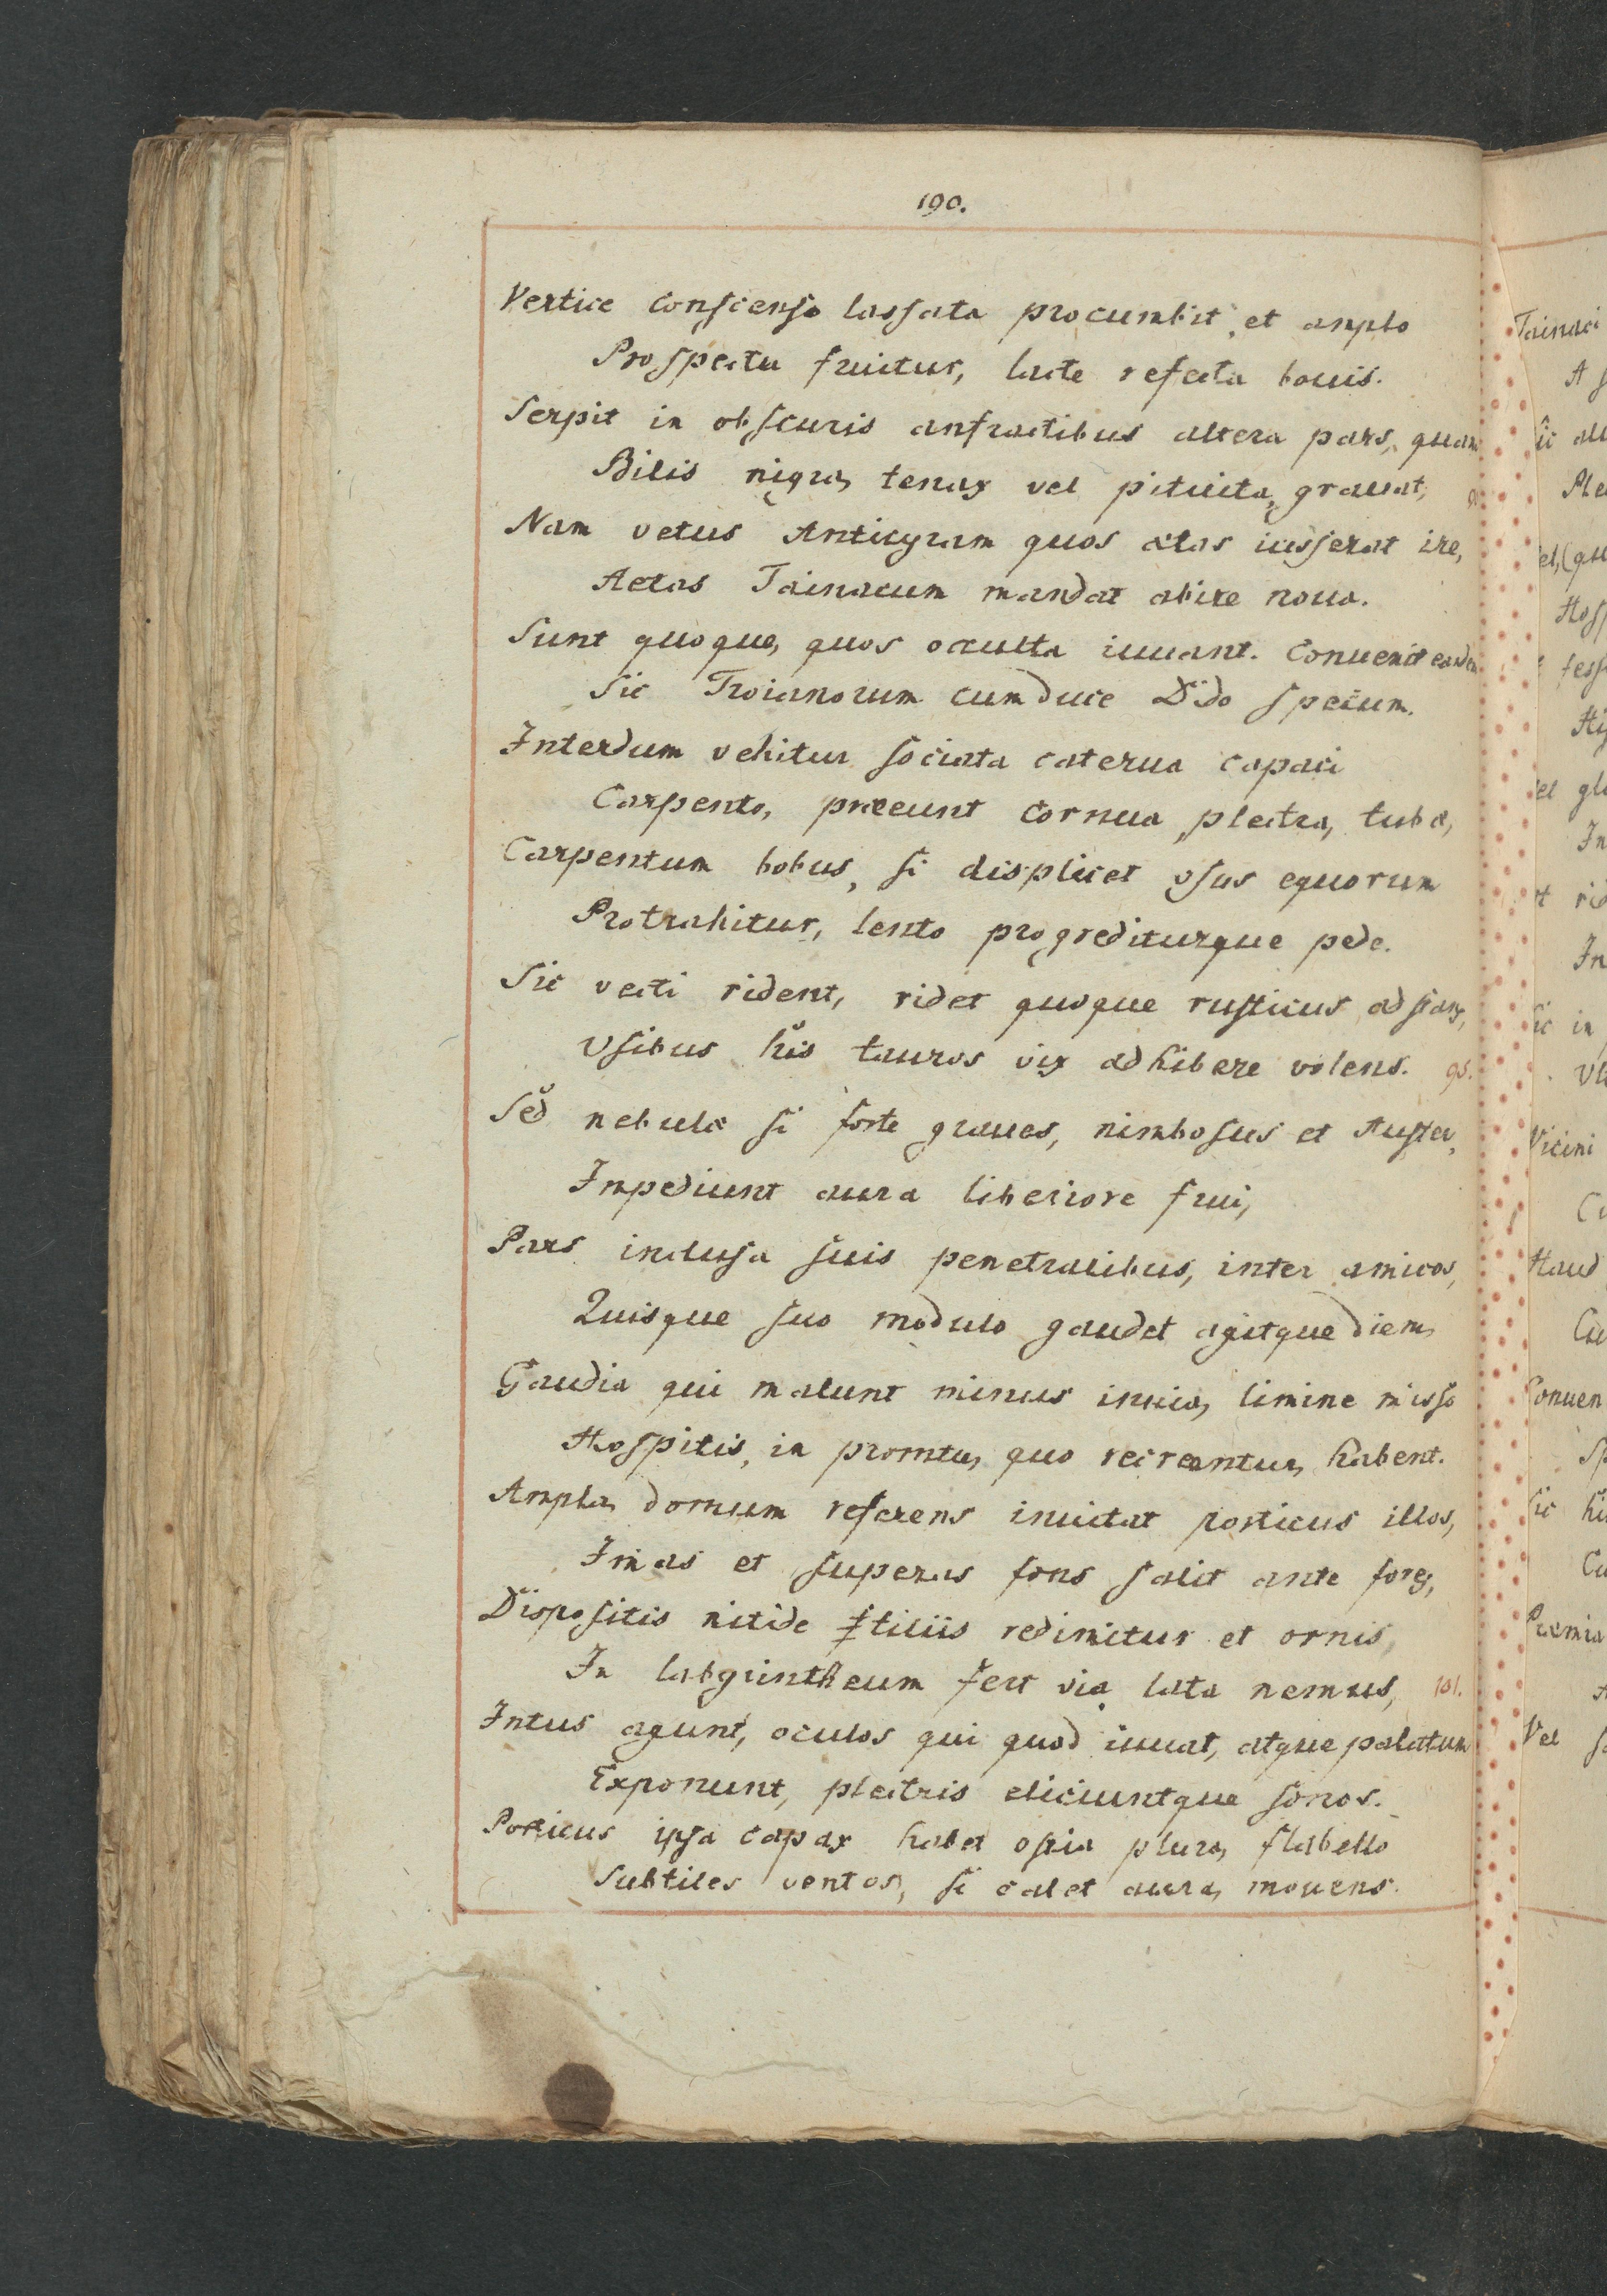 190.
Vertice conscenso lassata procumbit, et amplo
Prospectu fruitur, lacte refecta bouis.
Serpit in obscuris anfractibus altera pars, quam
Bilis nigra, tenax vel pituita, grauat,
Nam vetus Anticyram quos ætas iusserat ire,
Aetas Tainacum mandat abire noua.
Sunt quoque, quos occulta iuuant. Conuenit eandem
Sic Troianorum cum duce Dido specum.
Interdum vehitur sociata caterua capaci
Carpento, præeunt cornua, plectra, tubæ,
Carpentum bobus, si displicet vsus equorum
Protrahitur, lento progrediturque pede.
Sic vecti rident, ridet quoque rusticus adstans,
Vsibus his tauros vix adhibere volens. 95.
Sed nebulæ si forte graues, nimbosus et Auster,
Impediunt aura liberiore frui,
Pars inclusa suis penetralibus, inter amicos,
Quisque suo modulo gaudet agitque diem,
Gaudia qui malunt minus inuia, limine misso
Hospitis, in promtu, quo recreantur, habent.
Ampla, domum referens inuitat porticus illos,
Imas et superas fons salit ante fores,
Dispositis nitide tiliis redimitur et ornis,
In labyrintheum fert via lata nemus, 101.
Intus agunt, oculos qui quod iuuat, atque palatum
Exponunt, plectris eliciuntque sonos.
Porticus ipsa capax habet ostia plura, flabello
Subtiles ventos, si calet aura, mouens.